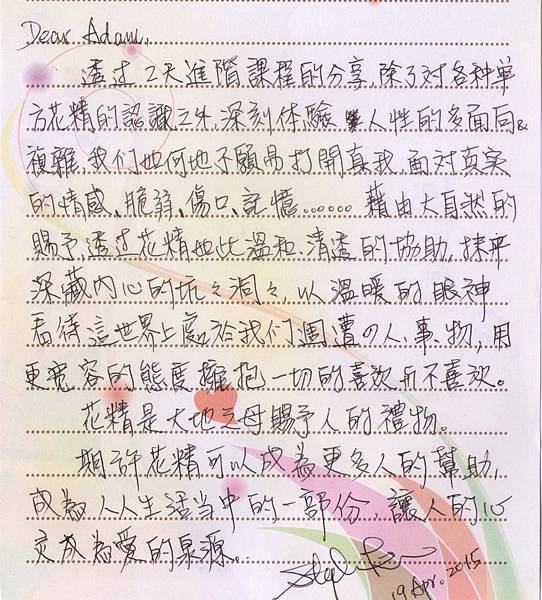 Dear Adam,
透过2天進階課程的分享,除了对各种单
方花精的認識之外,深刻体驗人性的多面向&
複雜,我们如何地不願易打開真我,面对真实
的情感、脆弱、傷口、記憶……藉由大自然的
賜予,透过花精如此溫和、清透的協助,抹平
深藏内心的坑々洞々,以溫暖的眼神
看待這世界上處於我们週遭の人、事、物,用
更宽容的態度擁抱一切的喜欢和不喜欢。
花精是大地之母賜予人的禮物。
期許花精可以成為更多人的幫助,
成為人人生活当中的一部份,讓人的心
变成為愛的泉源。
19 Apr. 2015